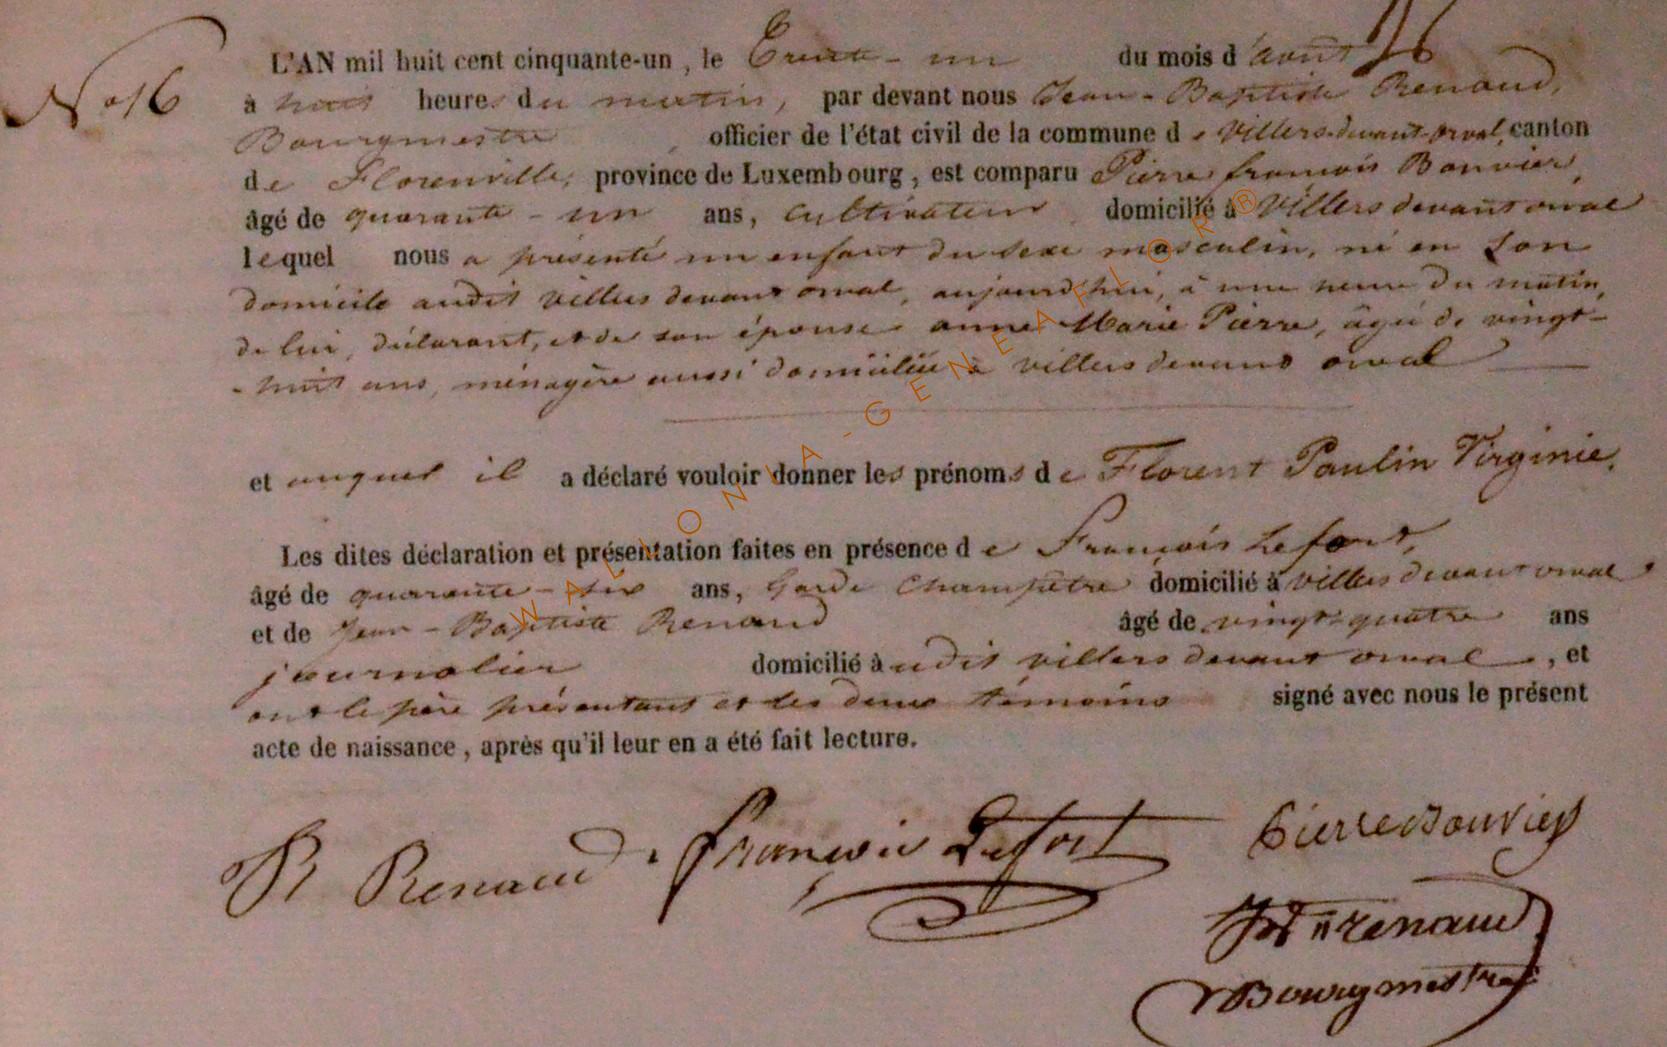 16
No 16
L'AN mil huit cent cinquante-un, le Trente-un du mois d'août
à huit heures du matin, par devant nous Jean-Baptiste Renaud,
Bourgmestre officier de l'état civil de la commune de villers-devant-orval, canton
de Florenville, province de Luxembourg, est comparu Pierre françois Bouvier,
âgé de quarante-un ans, cultivateur domicilié à villers devant orval
lequel nous a présenté un enfant du sexe masculin, né en son
domicile audit villers devant orval, aujourd'hui, à une heure du matin,
de lui, déclarant, et de son épouse anne Marie Pierre, âgée de vingt-
-huit ans, ménagère aussi domiciliée à villers devant orval
et auquel il a déclaré vouloir donner les prénoms de Florent Paulin Virginie.
Les dites déclaration et présentation faites en présence de François Lefort,
âgé de quarante-six ans, Garde Champêtre domicilié à villers devant orval
et de Jean-Baptiste Renaud âgé de vingt-quatre ans
journalier domicilié audit villers devant orval, et
ont le père présentant et les deux témoins signé avec nous le présent
acte de naissance, après qu'il leur en a été fait lecture.
Renaud françois Lefort Pierre Bouvier
renaud
Bourgmestre
WALLONIA-GENEAFLOR®